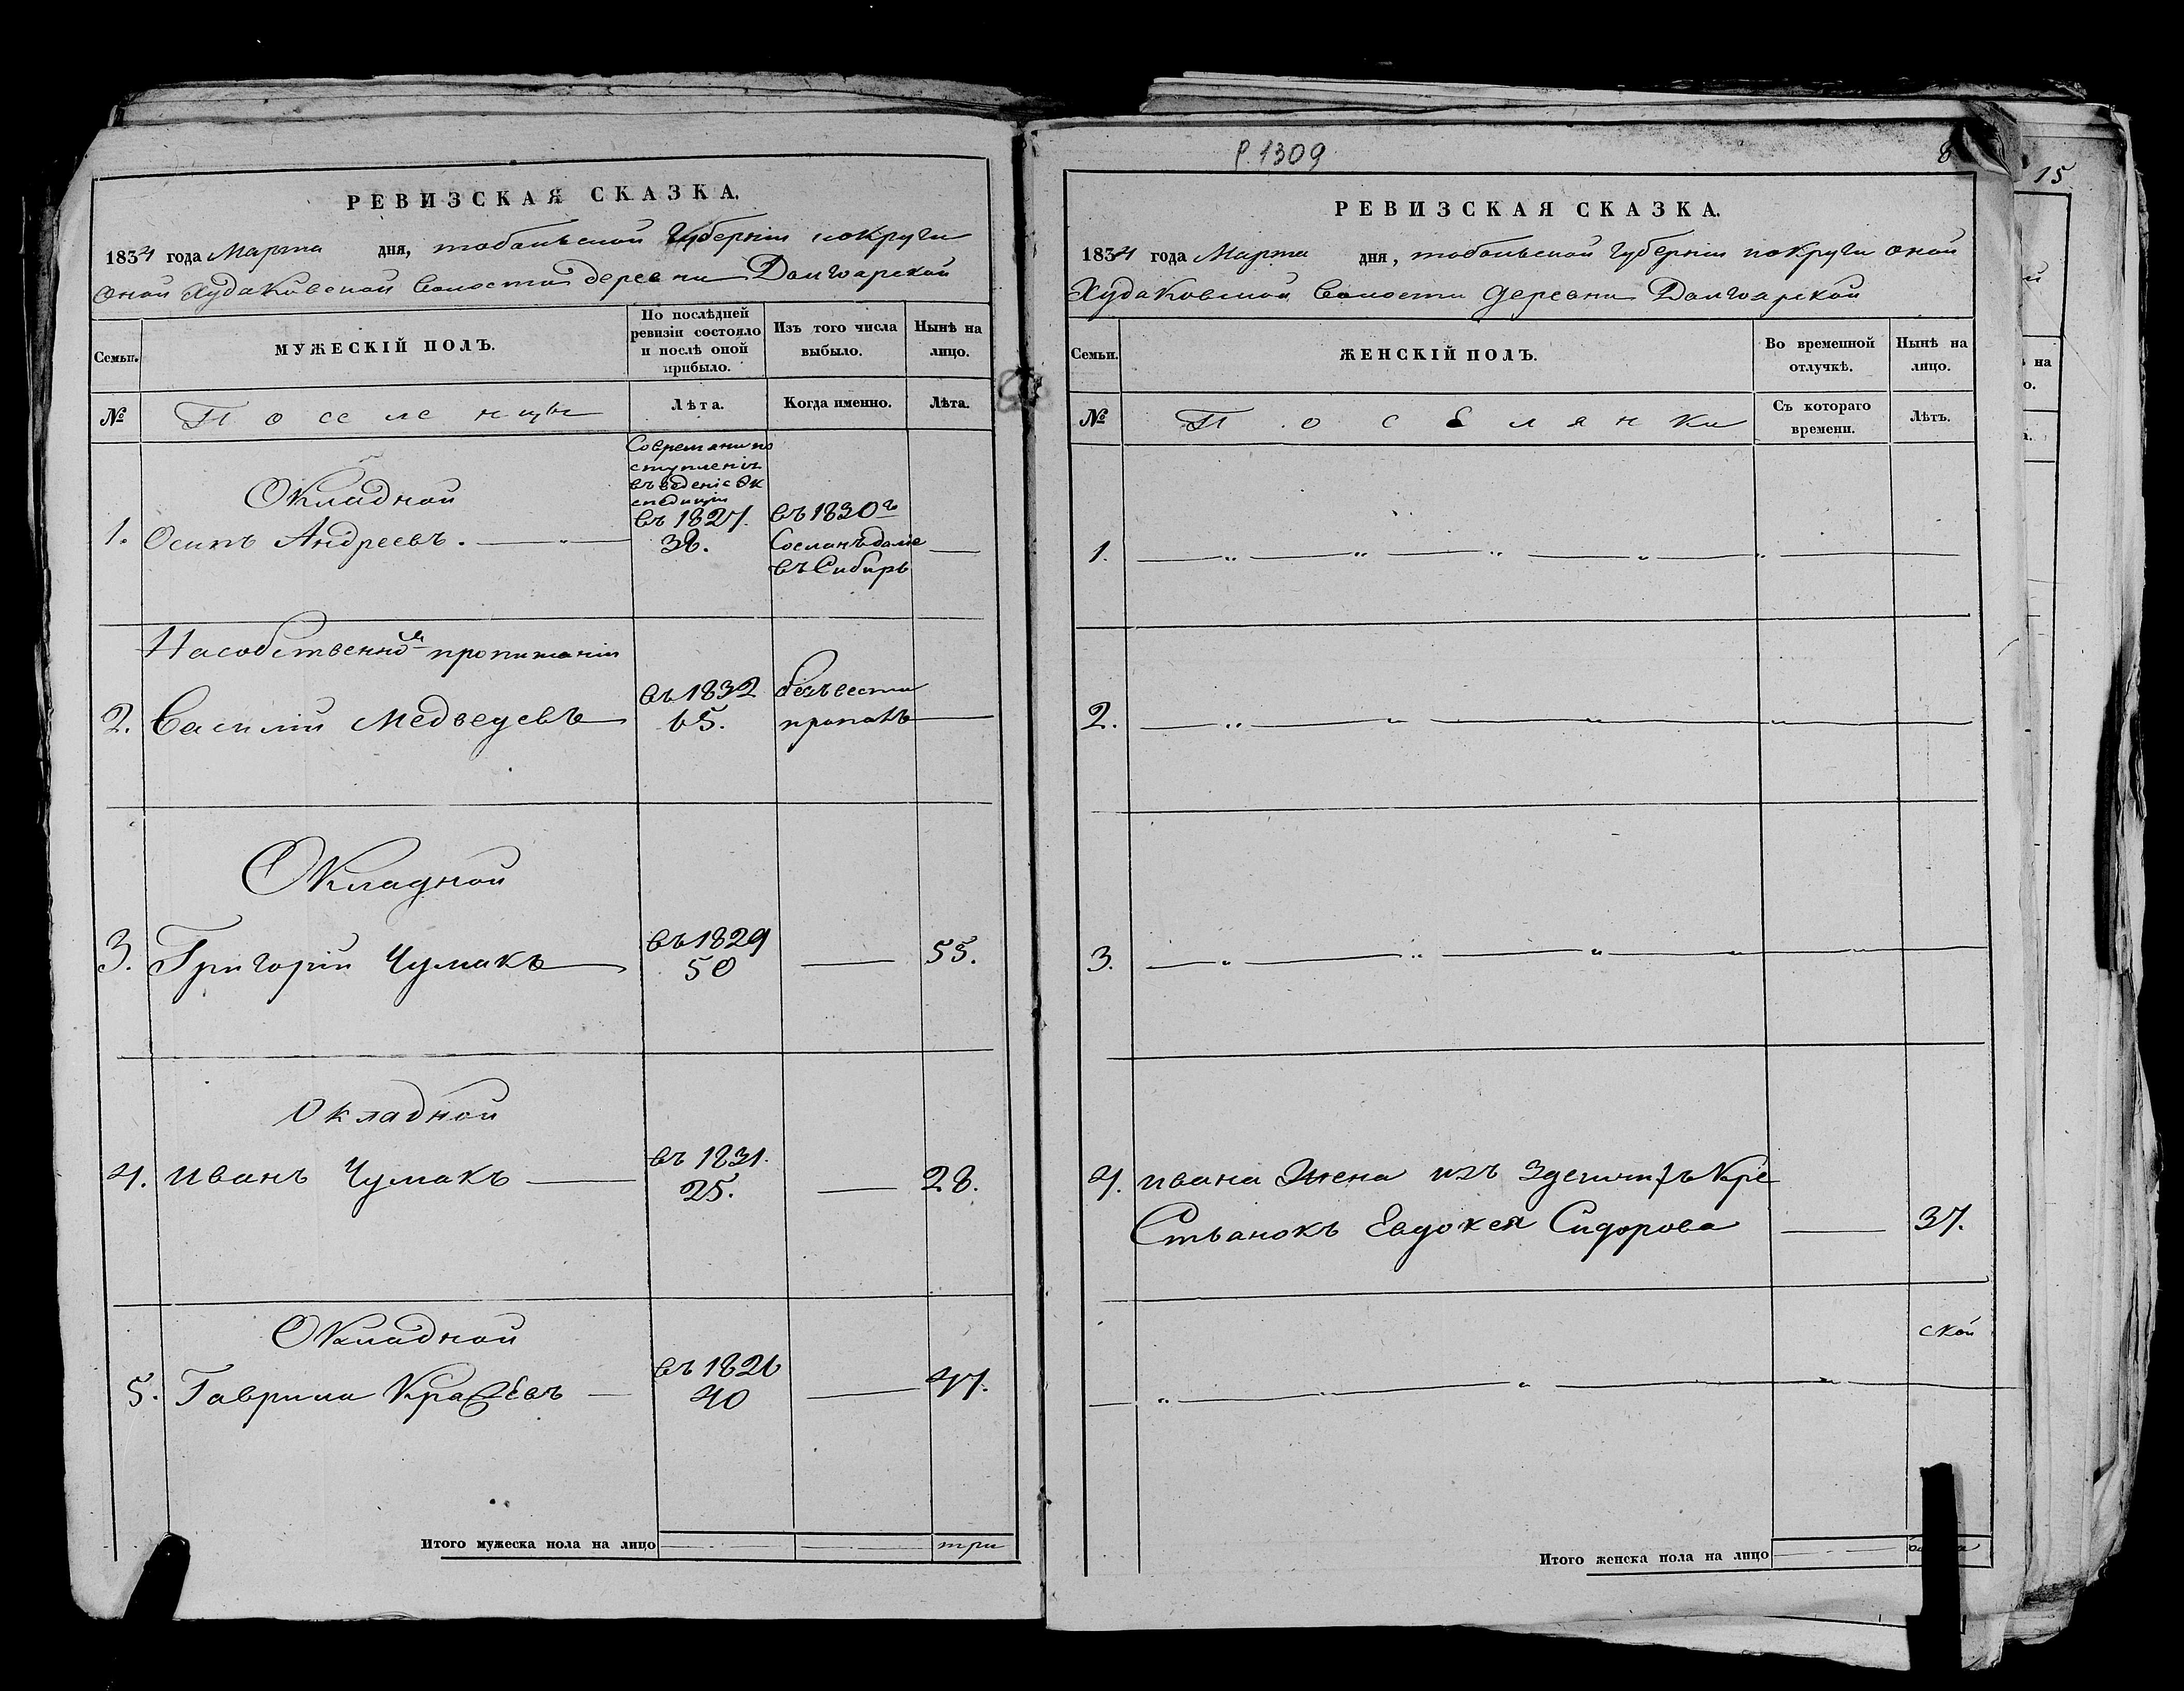 РЕВИЗСКАЯ СКАЗКА.
1834 года Марта дня, тобольской губернии и округи
оной Худаковской волости деревни
Семьи.
МУЖЕСКІЙ ПОЛЪ.
По послѣдней ревизіи состояло и послѣ оной прибыло.
Изъ того числа выбыло.
Нынѣ на лицо.
№
Поселенцы
Лѣта.
Когда именно.
Лѣта.
Окладной
1. Осипъ Андреевъ.
въ веденіе Эк
спедиции
въ 1827.
38.
въ 1830 г
Сосланъ далѣе
въ Сибирь
На собственно пропитаніи
2. Василій Медведевъ
въ 1832
65.
безъ вести
пропалъ
Окладной
3. Григорій Чумакъ
въ 1829
50
55.
Окладной
4. иванъ Чумакъ
въ 1831.
25.
28.
Окладной
5. Гаврила
въ 1826
40
47.
Итого мужеска пола на лицо
три
Р. 1309
8
РЕВИЗСКАЯ СКАЗКА.
1834 года Марта дня, тобольской губерніи и округи оной
Худаковской волости деревни
Семьи.
ЖЕНСКІЙ ПОЛЪ.
Во временной отлучкѣ.
Нынѣ на лицо.
№
Поселянки
Съ котораго времени.
Лѣтъ.
1.
2.
3.
4. ивана Жена изъ Кре
стьянокъ Евдокея Сидорова
37.
ской
Итого женска пола на лицо
15
на